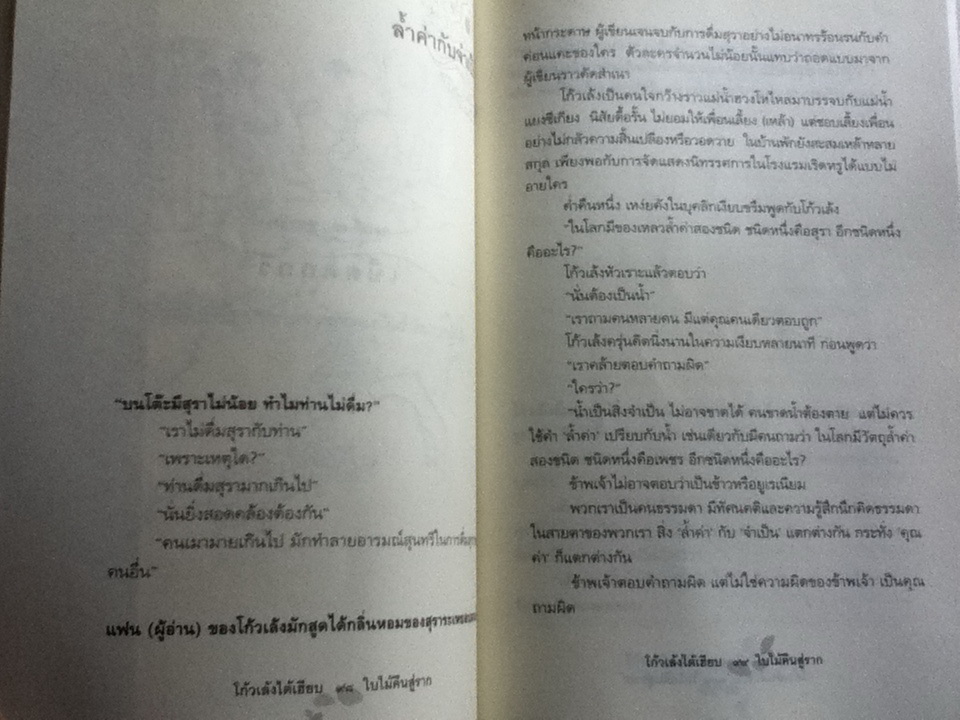 ล้ำค่ากับจำ
"บนโต๊ะมีสุราไม่น้อย ทำไมท่านไม่ดื่ม?"
"เราไม่ดื่มสุรากับท่าน"
"เพราะเหตุใด?"
"ท่านดื่มสุรามากเกินไป"
"นั่นยิ่งสอดคล้องต้องกัน"
"คนเมามายเกินไป มักทำลายอารมณ์สุนทรีในการดื่ม
คนอื่น"
แฟน (ผู้อ่าน) ของโก้วเล้งมักสูดได้กลิ่นหอมของสุราระเหย
โก้วเล้งไต้เฮียบ ๙๘ ใบไม้คืนสู่ราก
หน้ากระดาษ ผู้เขียนเจนจบกับการดื่มสุราอย่างไม่อนาทรร้อนรนกับคำ
ค่อนแคะของใคร ตัวละครจำนวนไม่น้อยนั้นแทบว่าถอดแบบมาจาก
ผู้เขียนราวคัดสำเนา
โก้วเล้งเป็นคนใจกว้างราวแม่น้ำฮวงโหไหลมาบรรจบกับแม่น้ำ
แยงซีเกียง นิสัยดื้อรั้น ไม่ยอมให้เพื่อนเลี้ยง (เหล้า) แต่ชอบเลี้ยงเพื่อน
อย่างไม่กลัวความสิ้นเปลืองหรือวอดวาย ในบ้านพักยังสะสมเหล้าหลาย
สกุล เพียงพอกับการจัดแสดงนิทรรศการในโรงแรมเริดหรูได้แบบไม่
อายใคร
ค่ำคืนหนึ่ง เหง่ยคังในบุคลิกเงียบขรึมพูดกับโก้วเล้ง
"ในโลกมีของเหลวล้ำค่าสองชนิด ชนิดหนึ่งคือสุรา อีกชนิดหนึ่ง
คืออะไร?"
โก้วเล้งหัวเราะแล้วตอบว่า
"นั่นต้องเป็นน้ำ"
"เราถามคนหลายคน มีแต่คุณคนเดียวตอบถูก"
โก้วเล้งครุ่นคิดนิ่งนานในความเงียบหลายนาที ก่อนพูดว่า
"เราคล้ายตอบคำถามผิด"
"ใครว่า?"
"น้ำเป็นสิ่งจำเป็น ไม่อาจขาดได้ คนขาดน้ำต้องตาย แต่ไม่ควร
ใช้คำ 'ล้ำค่า' เปรียบกับน้ำ เช่นเดียวกับมีคนถามว่า ในโลกมีวัตถุล้ำค่า
สองชนิด ชนิดหนึ่งคือเพชร อีกชนิดหนึ่งคืออะไร?
ข้าพเจ้าไม่อาจตอบว่าเป็นข้าวหรือยูเรเนียม
พวกเราเป็นคนธรรมดา มีทัศนคติและความรู้สึกนึกคิดธรรมดา
ในสายตาของพวกเรา สิ่ง 'ล้ำค่า' กับ 'จำเป็น' แตกต่างกัน กระทั่ง 'คุณ
ค่า' ก็แตกต่างกัน
ข้าพเจ้าตอบคำถามผิด แต่ไม่ใช่ความผิดของข้าพเจ้า เป็นคุณ
ถามผิด
โก้วเล้งไต้เฮียบ ๙๙ ใบไม้คืนสู่ราก